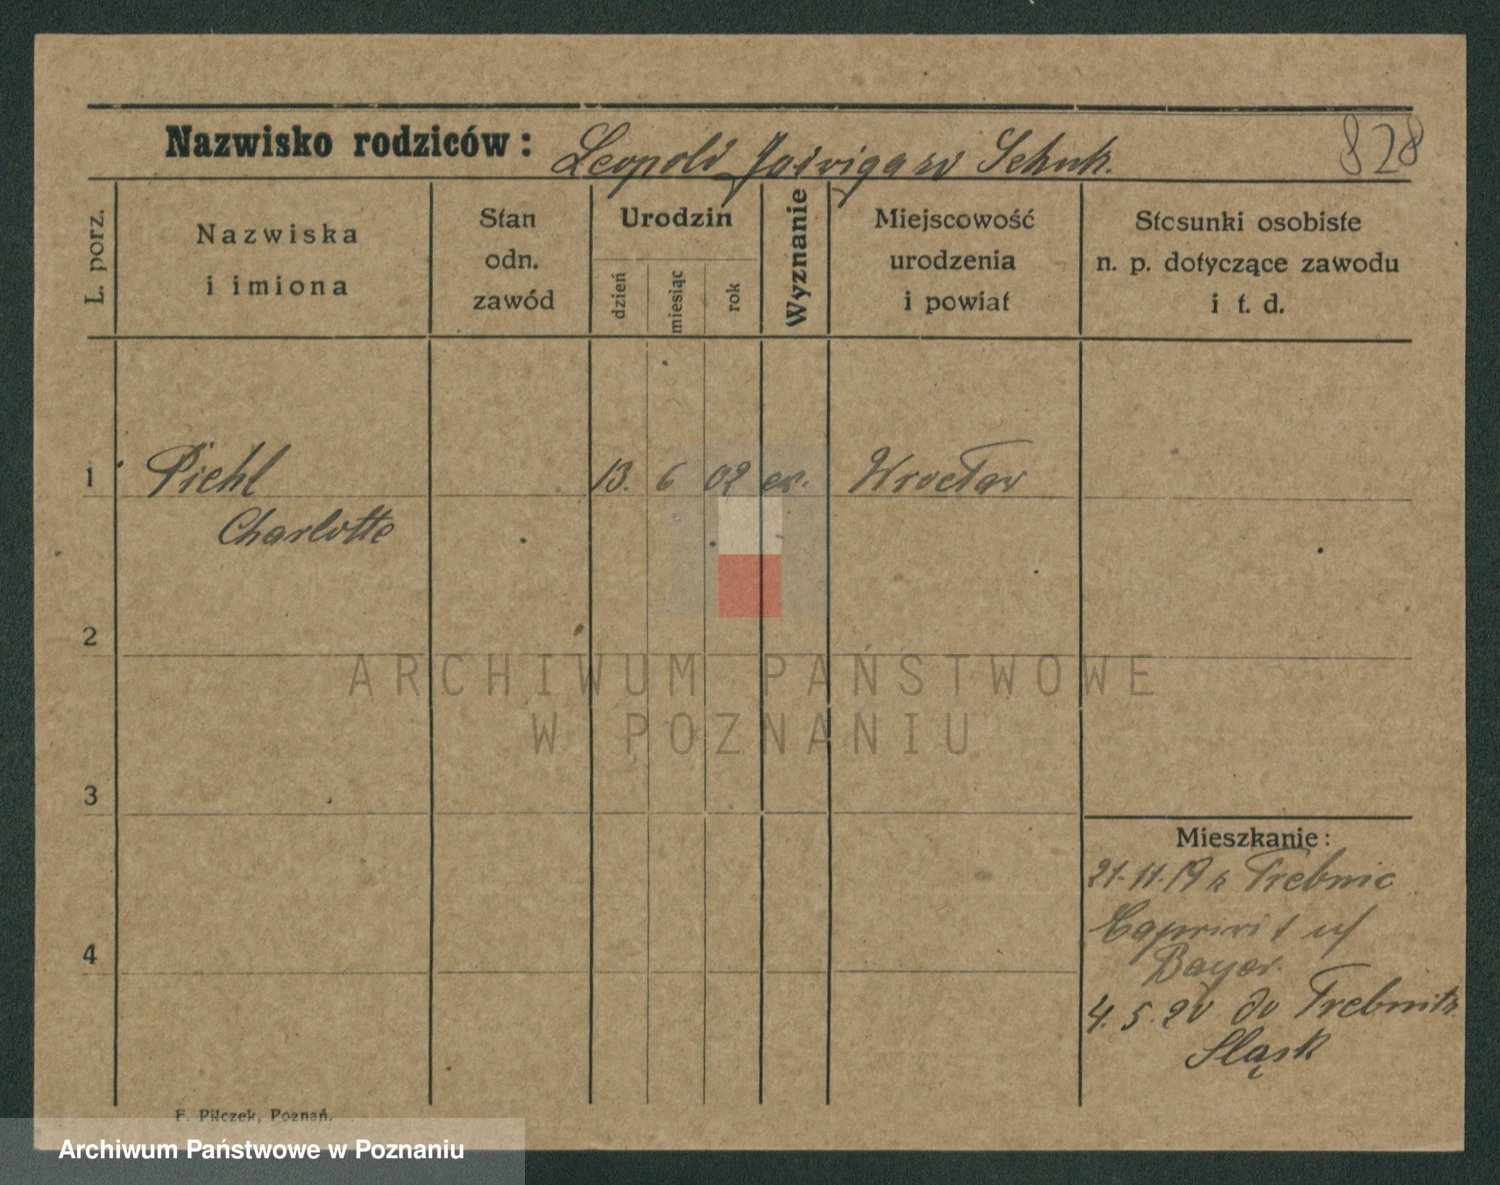 828
Nazwisko rodziców: Leopold Jadwiga zd Schuk.
L. porz.
Nazwiska
i imiona
Stan
odn.
zawód
Urodzin
dzień
miesiąc
rok
Wyznanie
Miejscowość
urodzenia
i powiat
Stosunki osobiste
n. p. dotyczące zawodu
i t. d.
1 Piehl 13. 6 02 ew. Wrocław
Charlotte
2
3
4
Mieszkanie:
21.11.19 z Trebnic
Caprivi 1 u/
Bayer.
4.5.20 do Trebnitz
Śląsk
F. Pilczek, Poznań.
ARCHIWUM PAŃSTWOWE
W POZNANIU
Archiwum Państwowe w Poznaniu